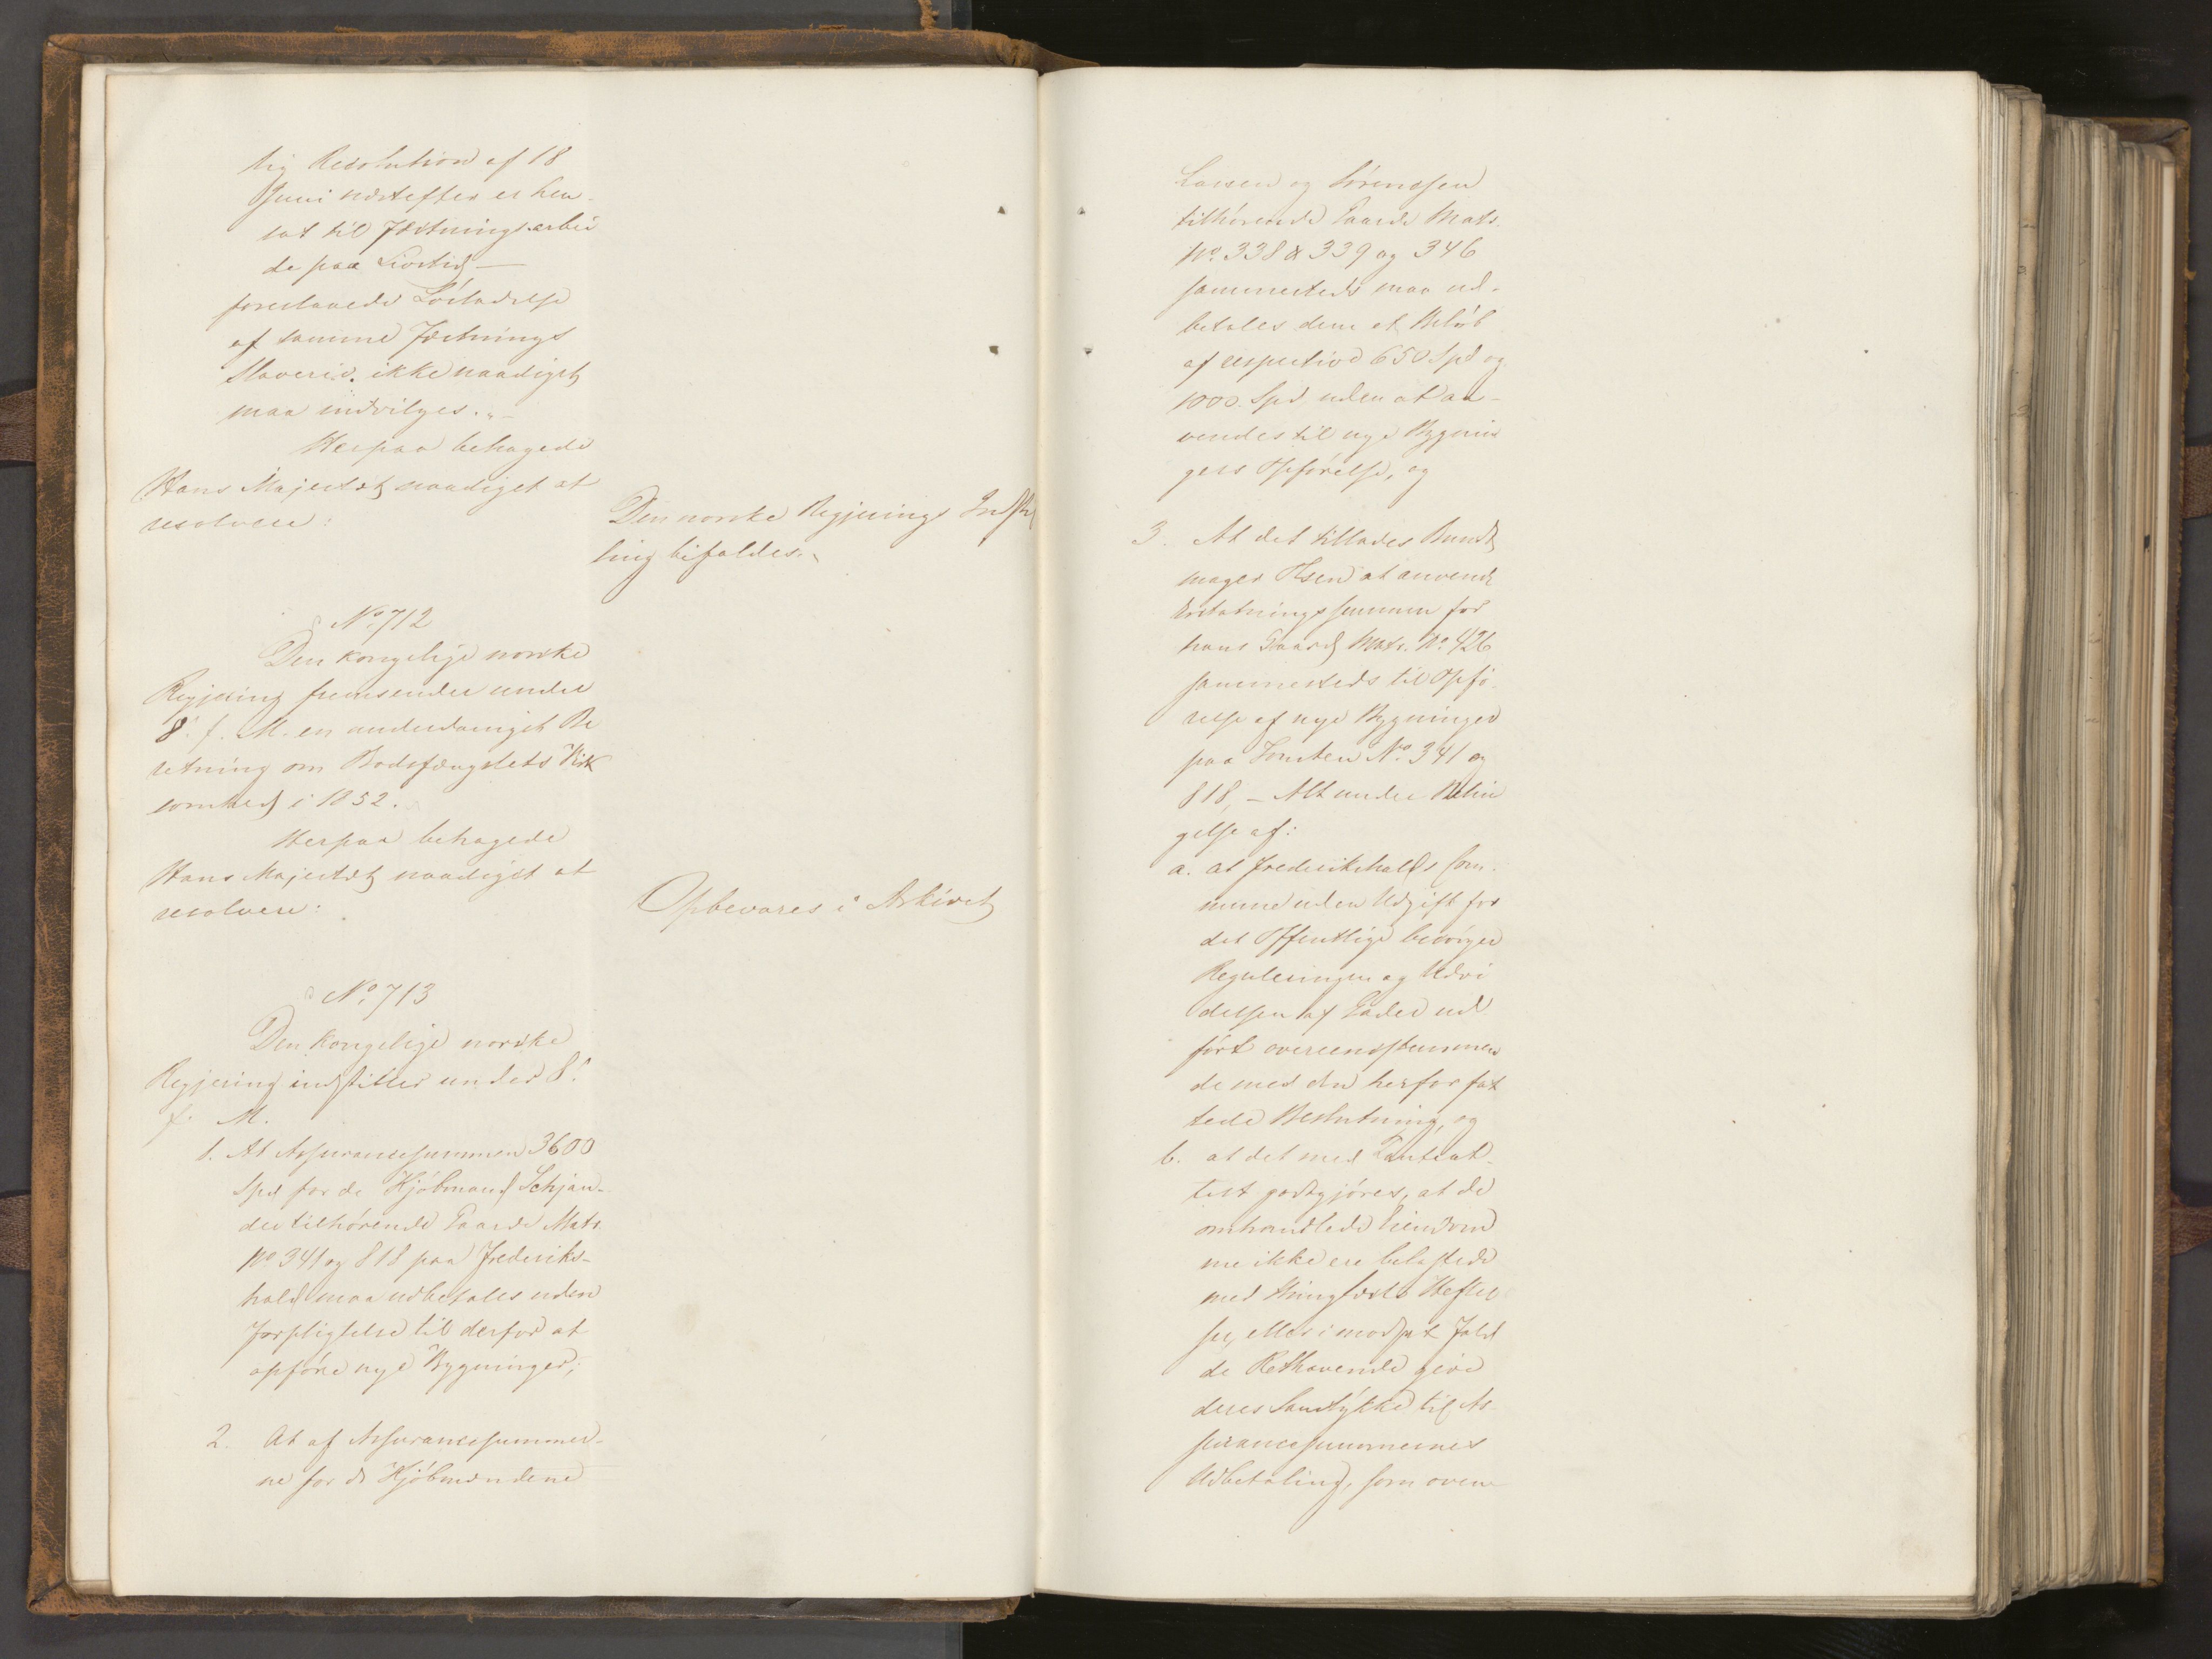 lig Resolution af 18
Juni næstefter er hen-
sat til Fæstningsarbei
de paa Livstid —
foreslaaede Løsladelse
af samme Fæstnings
Slaveri. ikke naadigst
maa indvilges. „—
Herpaa behagede
Hans Majestæt naadigst at
resolvere:
Den norske Regjerings Indstil
ling bifaldes.
No. 712
Den kongelige norske
Regjering fremsender under
8. f. M. en underdanigst Be
retning om Bodsfængslets Virk
somhed i 1852.
Herpaa behagede
Hans Majestæt naadigst at
resolvere:
Opbevares i Arkivet
No. 713
Den kongelige norske
Regjering indstiller under 8.
f. M.
1. At Assurancesummen 3600
Spd for de Kjøbmand Schjan-
der tilhørende Gaarde Matr.
No 341 og 818 paa Frederiks-
hald maa udbetales uden
Forpligtelse til derfor at
opføre nye Bygninger;
2. At af Assurancesummer-
ne for de Kjøbmændene
Larsen og Sørensen
tilhørende Gaarde Matr.
No. 338 & 339 og 346
sammesteds maa ud-
betales dem et Beløb
af respective 650 Spd og
1000. Spd uden at an-
vendes til nye Bygnin
gers Opførelse, og
3. At det tillades Bundt
mager Olsen at anvende
Erstatningssummen for
hans Gaard Matr. No. 426
sammesteds til Opfø-
relse af nye Bygninger
paa Tomten No. 341 og
818, — Alt under Betin
gelse af:
a. at Frederikshalds Com-
mune uden Udgift for
det Offentlige besørger
Reguleringen og Udvi
delsen af Gader ud
ført overeensstemmen
de med den herfor fat
tede Beslutning, og
b. at det med Panteat-
test godtgjøres, at de
omhandlede Eiendom
me ikke ere belastede
med thinglæste Heftel
ser, eller i modsat Fald
de Rethavende give
deres Samtykke til As
surancesummernes
Udbetaling, som oven